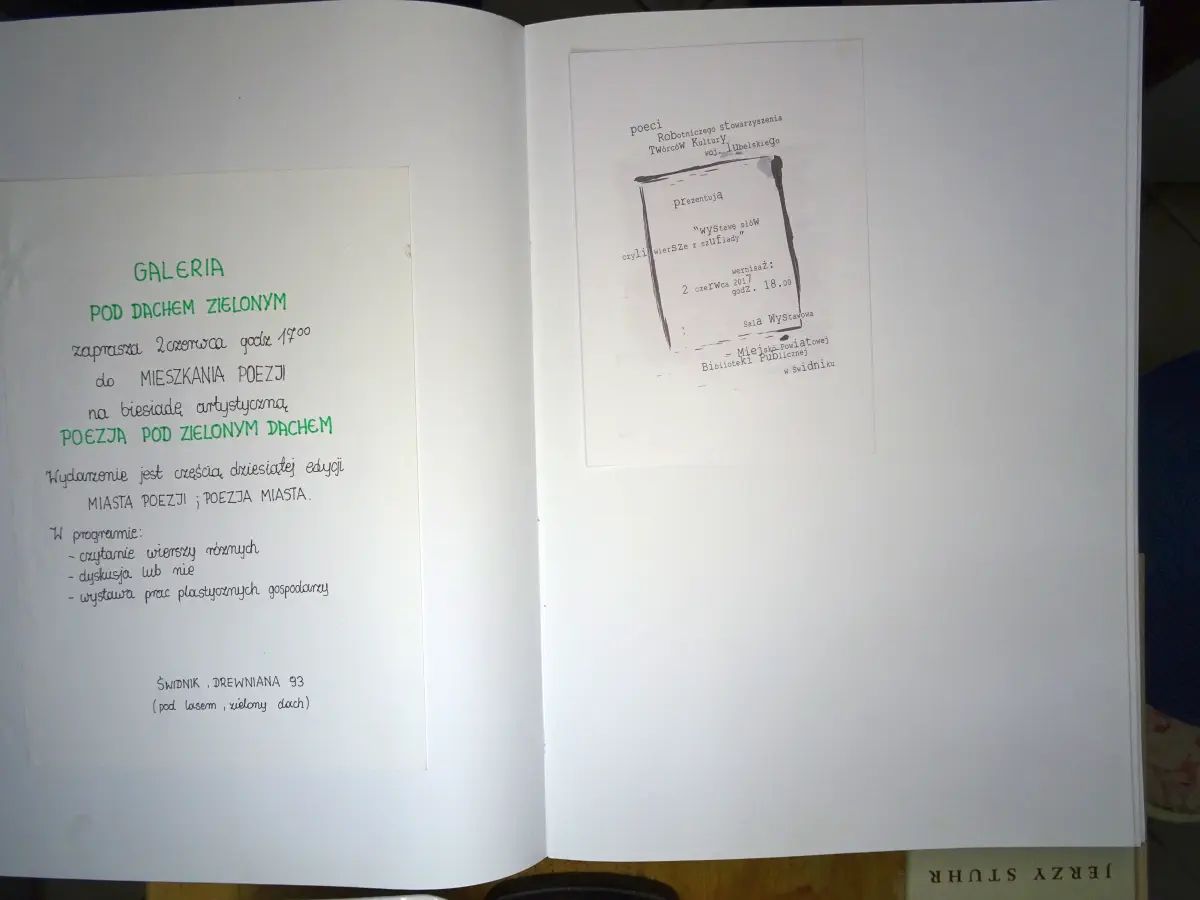 GALERIA
POD DACHEM ZIELONYM
zaprasza 2 czerwca godz 17⁰⁰
do MIESZKANIA POEZJI
na biesiadę artystyczną
POEZJA POD ZIELONYM DACHEM
Wydarzenie jest częścią dziesiątej edycji
MIASTA POEZJI ; POEZJA MIASTA.
W programie:
- czytanie wierszy różnych
- dyskusja lub nie
- wystawa prac plastycznych gospodarzy
ŚWIDNIK, DREWNIANA 93
(pod lasem, zielony dach)
poeci
RoBotniczego stowarzyszenia
TwórcóW Kultury
woj. lubelskiego
prezentują
"wystawę słóW
czyli wierSze z szuflady"
wernisaż:
2 czerwca 2017
godz. 18.00
:
Sala Wystawowa
- Miejsko Powiatowej
Biblioteki Publicznej
w Świdniku
JERZY STUHR